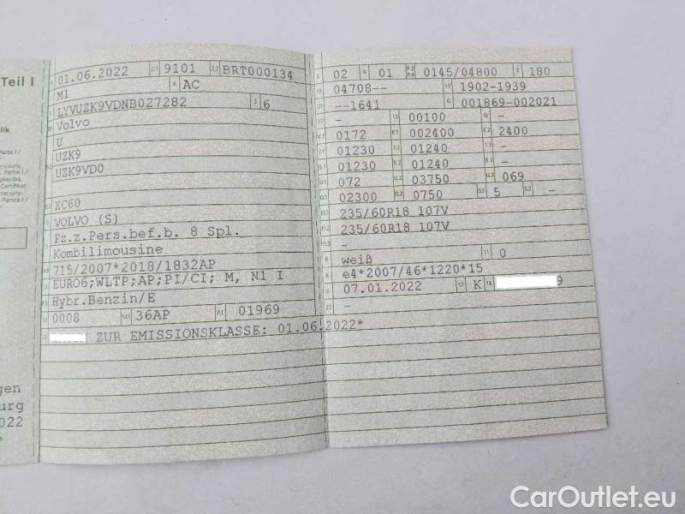 Teil I
lik
gen
urg
022
01.06.2022 9101 BRT000134
M1 AC
LYVUZK9VDNB027282 6
Volvo
U
UZK9
UZK9VD0
XC60
VOLVO (S)
Pz.z.Pers.bef.b. 8 Spl.
Kombilimousine
715/2007*2018/1832AP
EURO6;WLTP;AP;PI/CI; M, N1 I
Hybr.Benzin/E
0008 36AP 01969
ZUR EMISSIONSKLASSE: 01.06.2022*
02 01 0145/04800 180
04708-- 1902-1939
--1641 001869-002021
- 00100 -
0172 002400 2400
01230 01240 -
01230 01240 -
072 03750 069
02300 0750 5 -
235/60R18 107V
235/60R18 107V
-
weiß 0
e4*2007/46*1220*15
07.01.2022 K 9
-
CarOutlet.eu